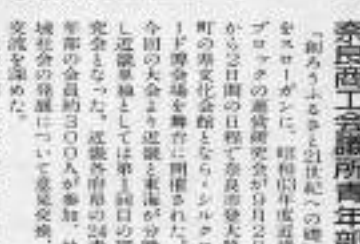 奈良商工会議所青年部
「創ろうふるさと21世紀への礎
をスローガンに、昭和63年度近
ブロックの運営研究会が9月2
から2日間の日程で奈良市登大路
町の県文化会館となら・シルクロ
ード博会場を舞台に開催された。
今回の大会より近畿と東海が分
し近畿単独としては第1回目の
究会となった。近畿各府県の24
年部の会員約300人が参加、
域社会の発展について意見交換、
交流を深めた。